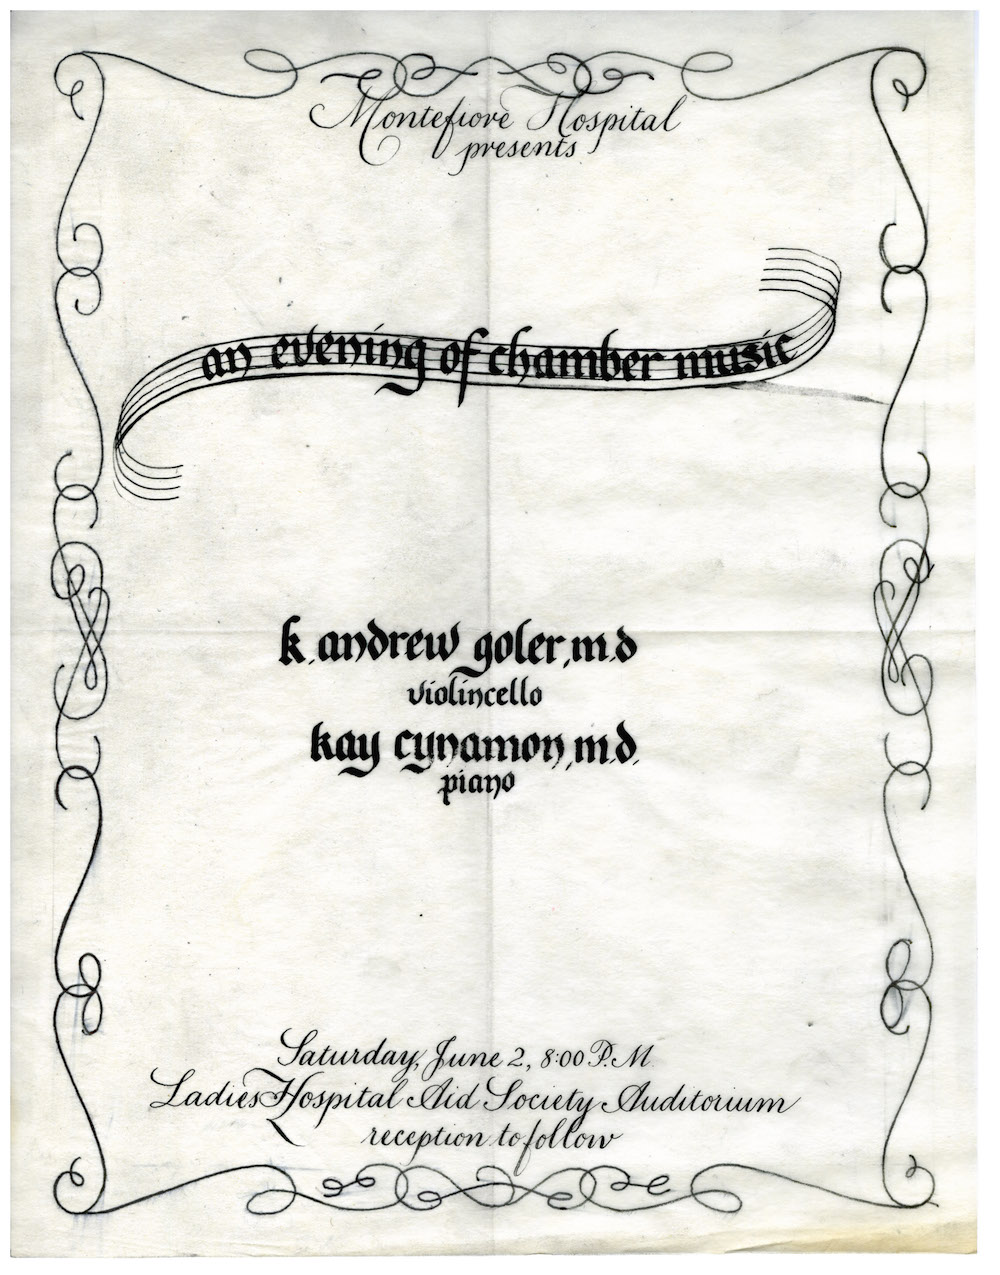 Montefiore Hospital
presents
an evening of chamber music
k. andrew goler, m.d
violincello
kay cynamon, m.d.
piano
Saturday, June 2, 8:00 P.M.
Ladies Hospital Aid Society Auditorium
reception to follow